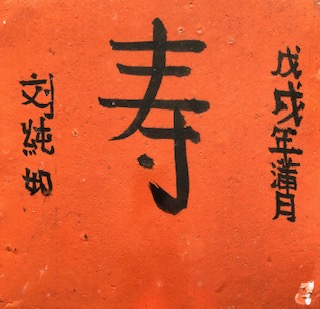 戊戌年蒲月
寿
刘純如